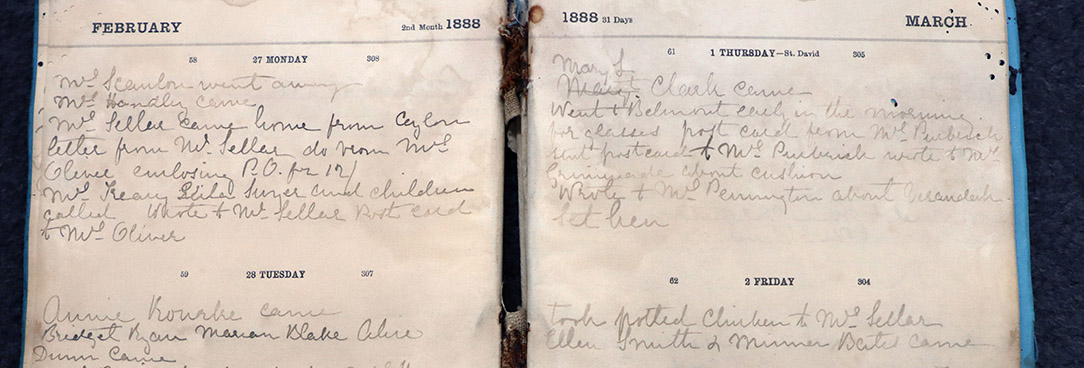 FEBRUARY 2nd Month 1888
58 27 MONDAY 308
Mrs Scanlon went away
Mrs Handley came
Mrs Sellar came home from Ceylon
letter from Mr Sellar do from Mrs
Oliver enclosing P.O. for 12/
Mrs Treacy and children
called Wrote to Mr Sellar Post card
to Mrs Oliver
59 28 TUESDAY 307
Annie Rourke came
Bridget Ryan Marian Blake Alice
Dunn Came
1888 31 Days MARCH
61 1 THURSDAY—St. David 305
Mary S
Mary Clark came
Went to Belmont early in the morning
for glasses post card from Mrs
sent postcard to Mrs wrote to Mrs
about cushion
Wrote to Mr Pennington about Verandah
Set hen
62 2 FRIDAY 304
took potted Chicken to Mrs Sellar
Ellen Smith & Minnie Bates came